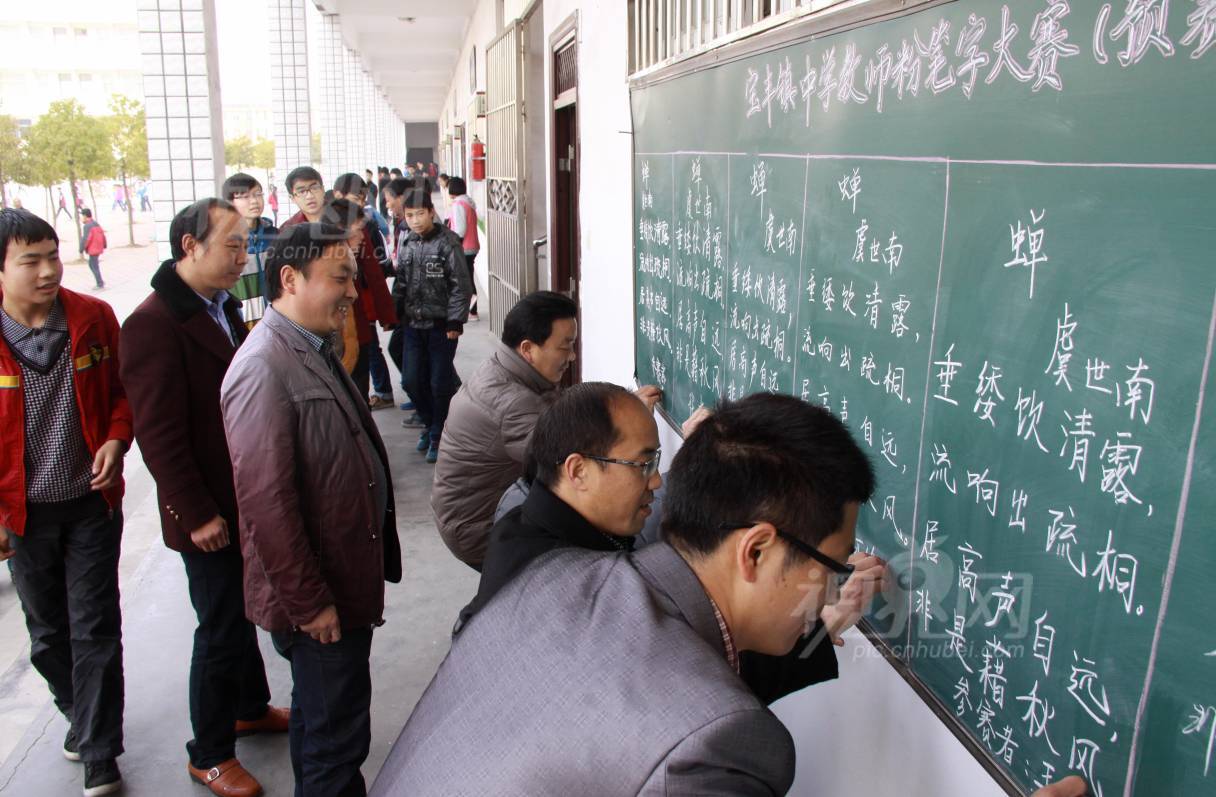 宝丰镇中学教师粉笔字大赛(预赛
蝉
虞世南
垂緌饮清露
流响出疏桐
居高声自远
非是藉秋风
蝉
虞世南
垂緌饮清露
流响出疏桐
居高声自远
非是藉秋风
蝉
虞世南
垂緌饮清露,
流响出疏桐。
居高声自
非是
蝉
虞世南
垂緌饮清露,
流响出疏桐。
居高声自远,
风。
蝉
虞世南
垂緌饮清露,
流响出疏桐。
居高声自远,
非是藉秋风
参赛者
非
视界网
pic.cnhubei.com
视界网
pic.cnhubei.com